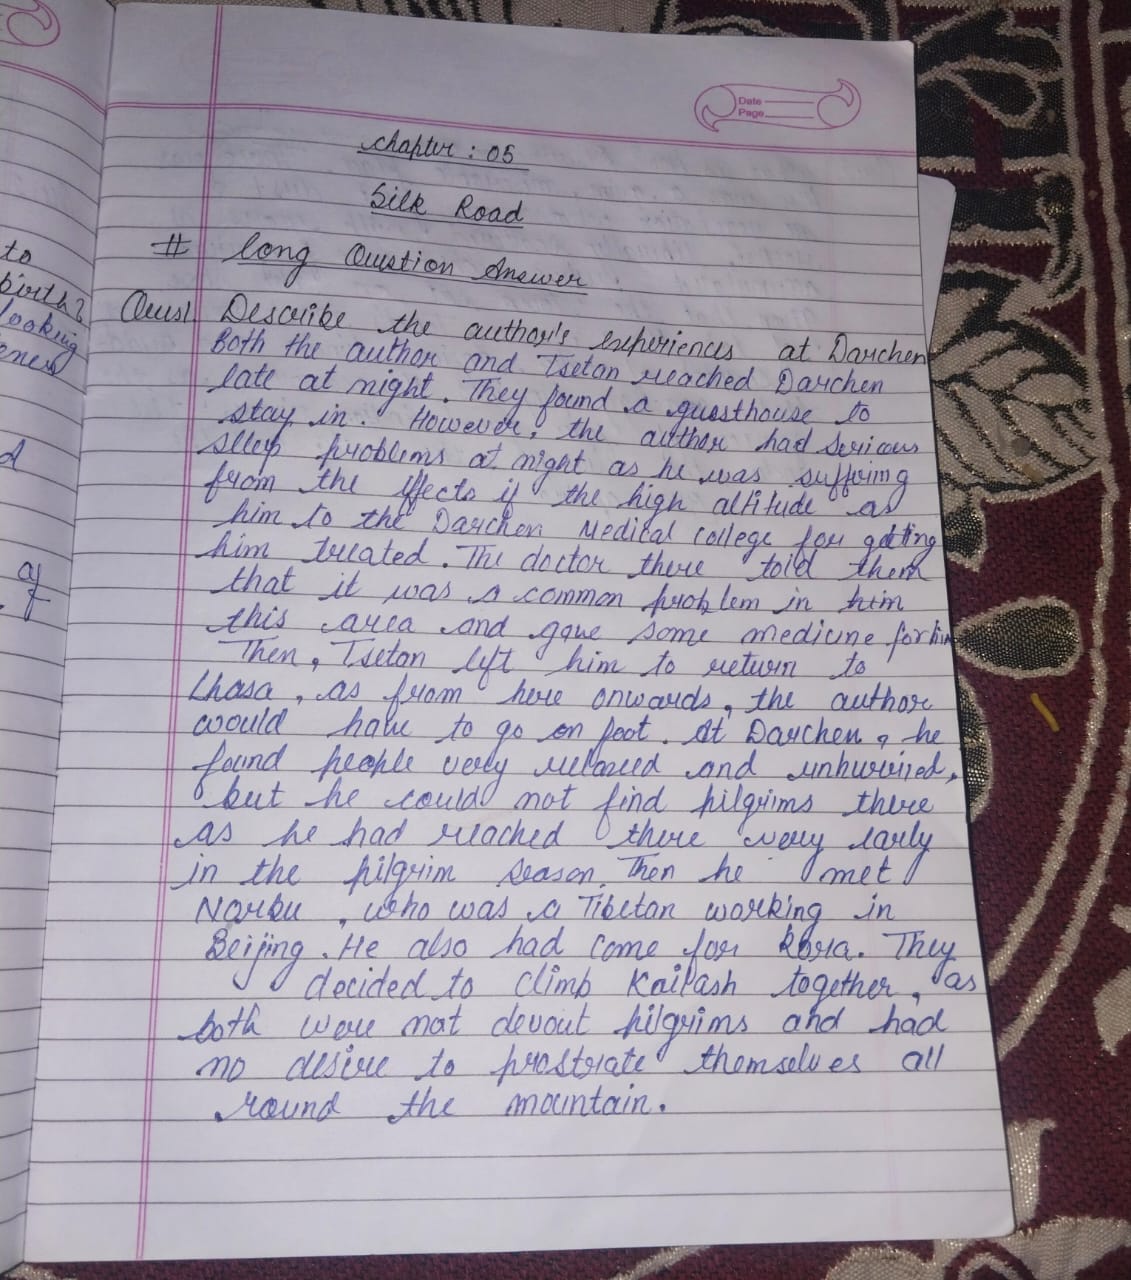 Date
Page
Chapter : 05
Silk Road
# long Question Answer
Ques1 Describe the author's experiences at Darchen
Both the author and Tseton reached Darchen
late at night. They found a guesthouse to
stay in. However, the author had serious
sleep problems at night as he was suffering
from the effects if the high altitude as
him to the Darchen Medical college for getting
him treated. The doctor there told them
that it was a common problem in him
this area and gave some medicine for him
Then, Tseton left him to return to
Lhasa, as from here onwards, the author
would have to go on foot. At Darchen, he
found people very relaxed and unhurried,
but he could not find pilgrims there
as he had reached there very early
in the pilgrim season. Then he met
Norbu, who was a Tibetan working in
Beijing. He also had come for kora. They
decided to climb Kailash together, as
both were not devout pilgrims and had
no desire to prostrate themselves all
round the mountain.
to
birth?
looking
of